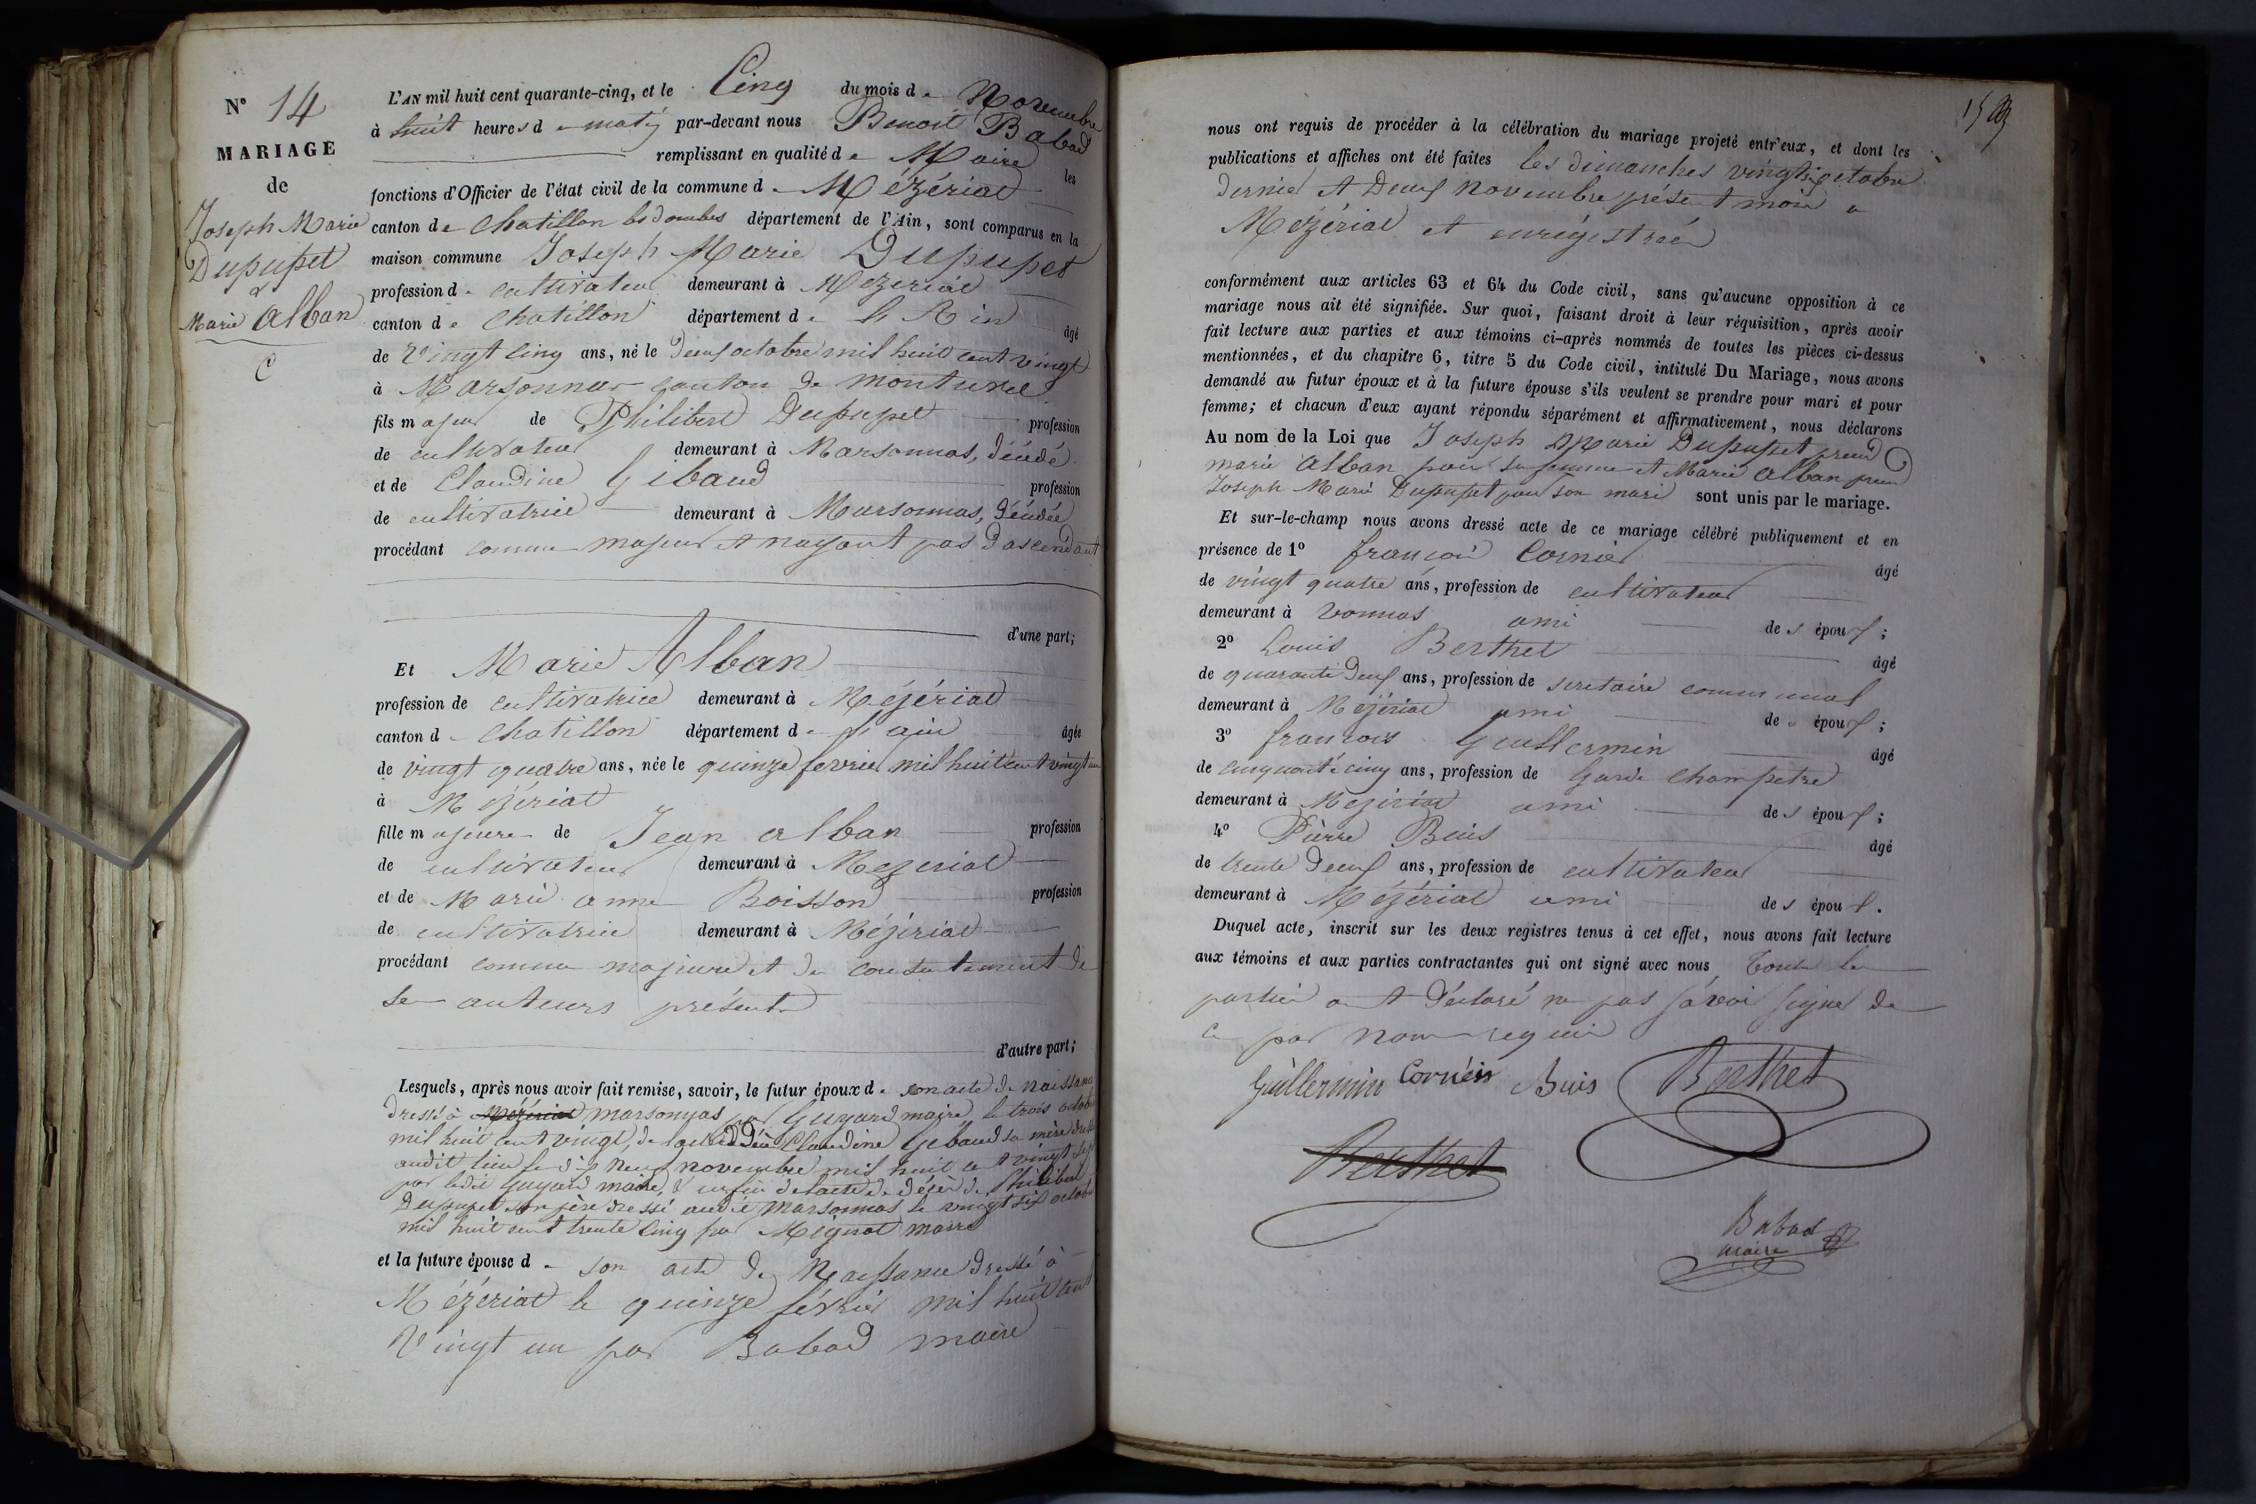 N° 14
MARIAGE
de
Joseph Marie
Dupupet
&
Marie Alban
C
L'AN mil huit cent quarante-cinq, et le Cinq du mois de Novembre
à huit heures de matin par-devant nous Benoit Babad
remplissant en qualité de Maire les
fonctions d'Officier de l'état civil de la commune de Mézériat
canton de Chatillon les dombes département de l'Ain, sont comparus en la
maison commune Joseph Marie Dupupet
profession de cultivateur demeurant à Mezeriat
canton de Chatillon département de l'Ain âgé
de Vingt Cinq ans, né le Deux octobre mil huit cent vingt
à Marsonnas canton de montuvel
fils majeur de Philibert Dupupet profession
de cultivateur demeurant à Marsonnas, décédé
et de Claudine Gibaud profession
de cultivatrice demeurant à Marsonnas, décédée
procédant comme majeur et n'ayant pas d'ascendant
d'une part;
Et Marie Alban
profession de cultivatrice demeurant à Mézériat
canton de Chatillon département de l'ain âgée
de vingt quatre ans, née le quinze fevrier mil huit cent vingt un
à Mézériat
fille majeure de Jean alban profession
de cultivateur demeurant à Mezeriat
et de Marie anne Boisson profession
de cultivatrice demeurant à Mézériat
procédant comme majeure et du consentement de
ses auteurs présents
d'autre part;
Lesquels, après nous avoir fait remise, savoir, le futur époux de son acte de naissance
dressé à Mézériat marsonnas par Guyard maire, le trois octobre
mil huit cent vingt, de l'acte de décès Claudine Gibaud sa mère dressé
audit lieu le dix neuf novembre mil huit cent vingt sept
par ledit Guyard maire, & enfin de l'acte de décès de Philibert
Dupupet son père dressé audit Marsonnas le vingt six octobre
mil huit cent trente cinq par Mignot maire
et la future épouse de son acte de Naissance dressé à
Mézériat le quinze février mil huit cent
Vingt un par Babad maire
15
nous ont requis de procéder à la célébration du mariage projeté entr'eux, et dont les
publications et affiches ont été faites les dimanches vingt six octobre
dernier et Deux novembre présent mois a
Mézériat et enrégistrées
conformément aux articles 63 et 64 du Code civil, sans qu'aucune opposition à ce
mariage nous ait été signifiée. Sur quoi, faisant droit à leur réquisition, après avoir
fait lecture aux parties et aux témoins ci-après nommés de toutes les pièces ci-dessus
mentionnées, et du chapitre 6, titre 5 du Code civil, intitulé Du Mariage, nous avons
demandé au futur époux et à la future épouse s'ils veulent se prendre pour mari et pour
femme; et chacun d'eux ayant répondu séparément et affirmativement, nous déclarons
Au nom de la Loi que Joseph Marie Dupupet prend
marie alban pour sa femme et Marie alban prend
Joseph Marie Dupupet pour son mari sont unis par le mariage.
Et sur-le-champ nous avons dressé acte de ce mariage célébré publiquement et en
présence de 1° françois Cornier âgé
de vingt quatre ans, profession de cultivateur
demeurant à vonnas ami des époux;
2° Louis Berthet âgé
de quarante deux ans, profession de secretaire communal
demeurant à Mézériat ami des époux;
3° françois Guillermin âgé
de cinquante cinq ans, profession de Garde Champetre
demeurant à Mezériat ami des époux;
4° Pierre Buis âgé
de trente deux ans, profession de cultivateur
demeurant à Mézériat ami des époux.
Duquel acte, inscrit sur les deux registres tenus à cet effet, nous avons fait lecture
aux témoins et aux parties contractantes qui ont signé avec nous toutes les
parties ont déclaré ne pas savoir signer de
ce par nous requis
Guillermin Cornier Buis Berthet
Berthet
Babad
maire